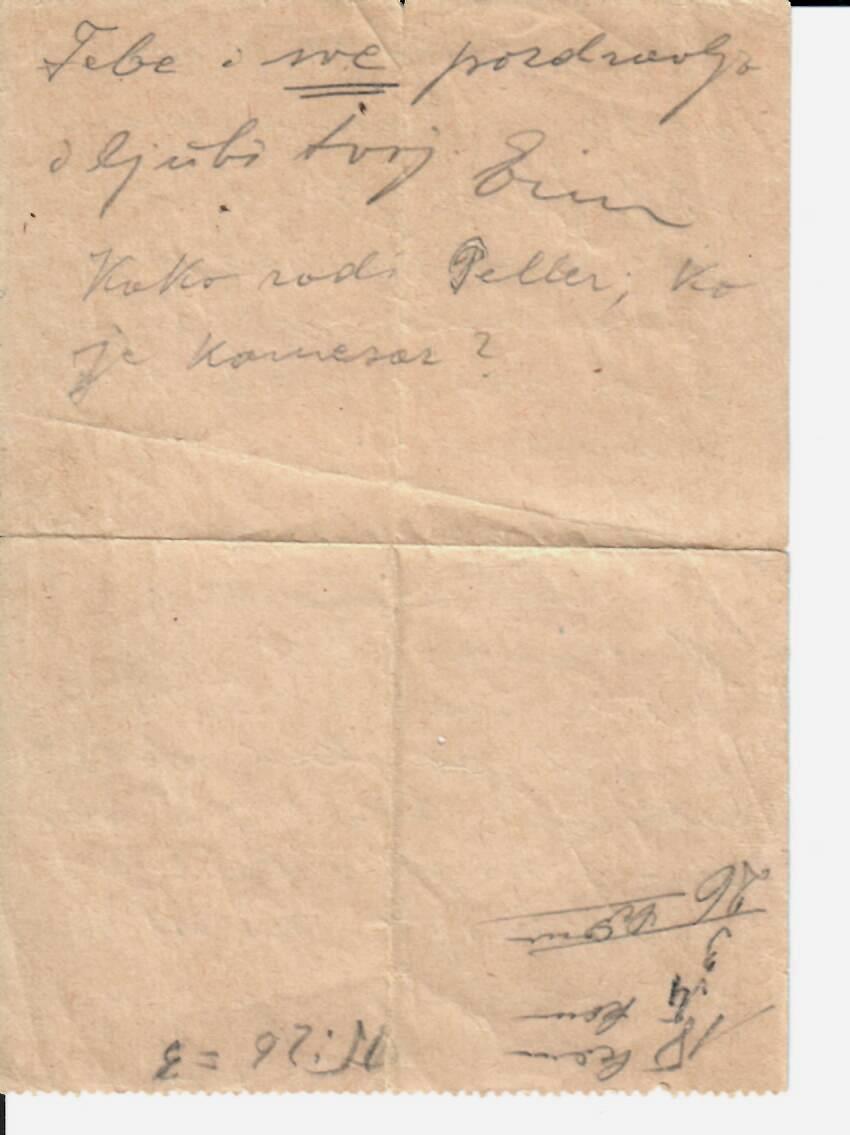 Tebe i sve pozdravlja
i ljubi tvoj
Kako radi Peller, ko
je komesar?
18 kom
4 kom
3
26 kom
: 26 = 3